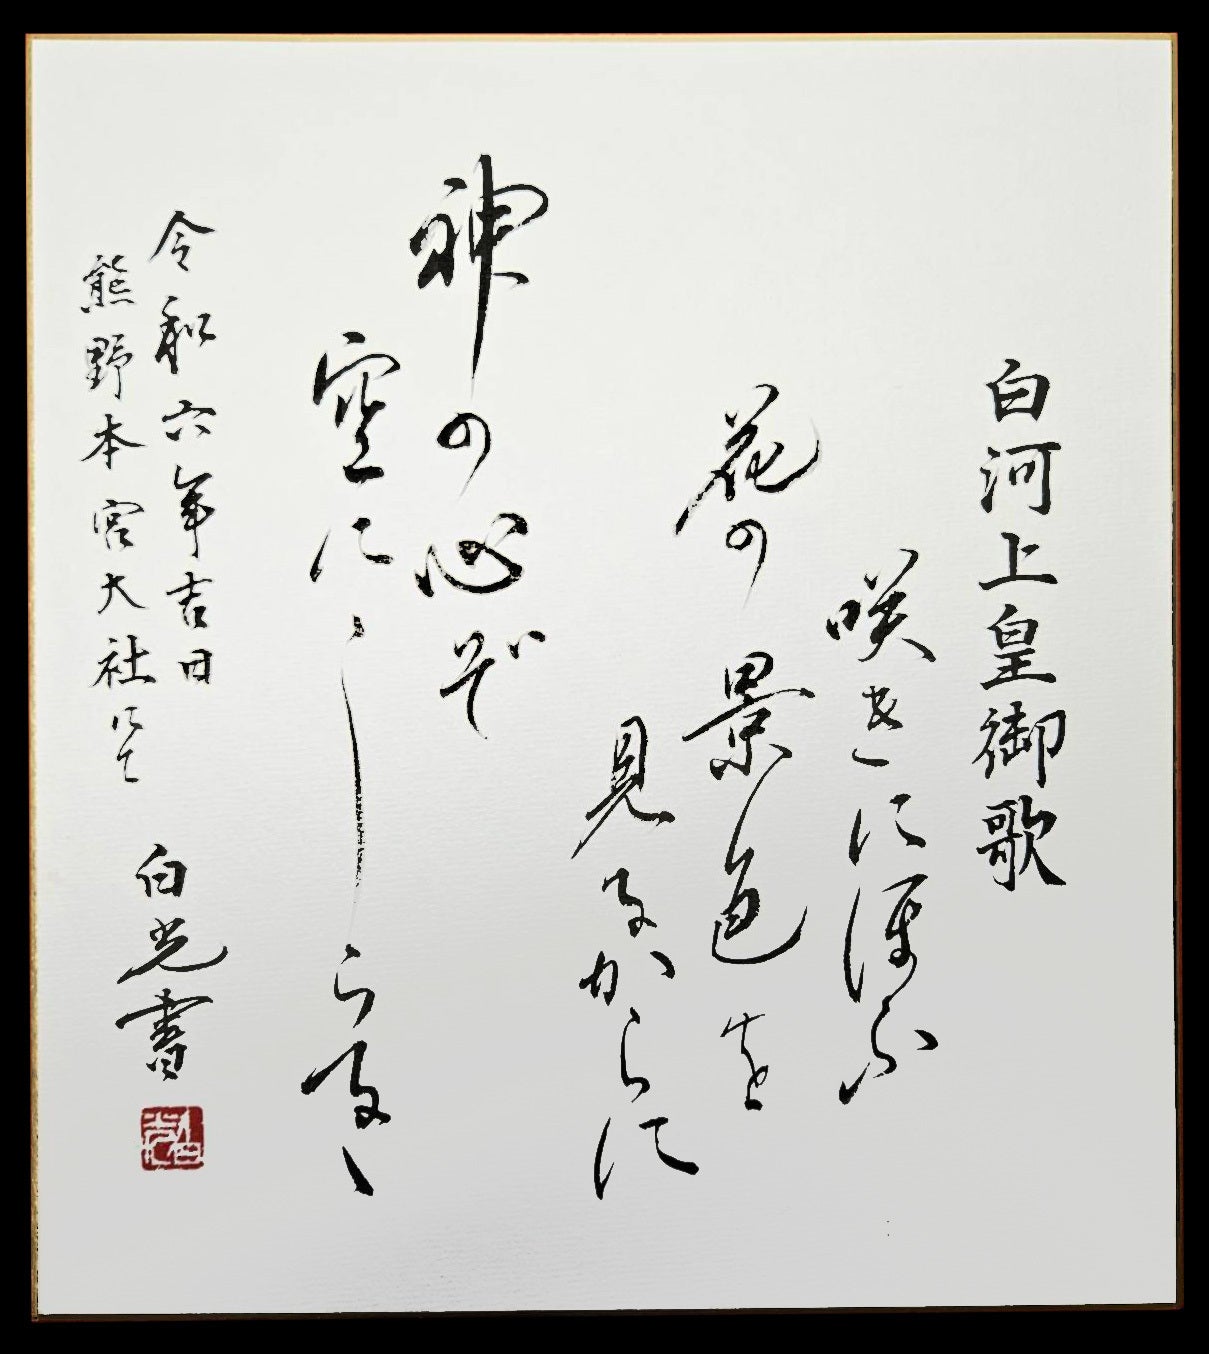 白河上皇御歌
咲きにほふ
花の景色を
見るからに
神の心ぞ
空にしらるゝ
令和六年吉日
熊野本宮大社にて
白光書